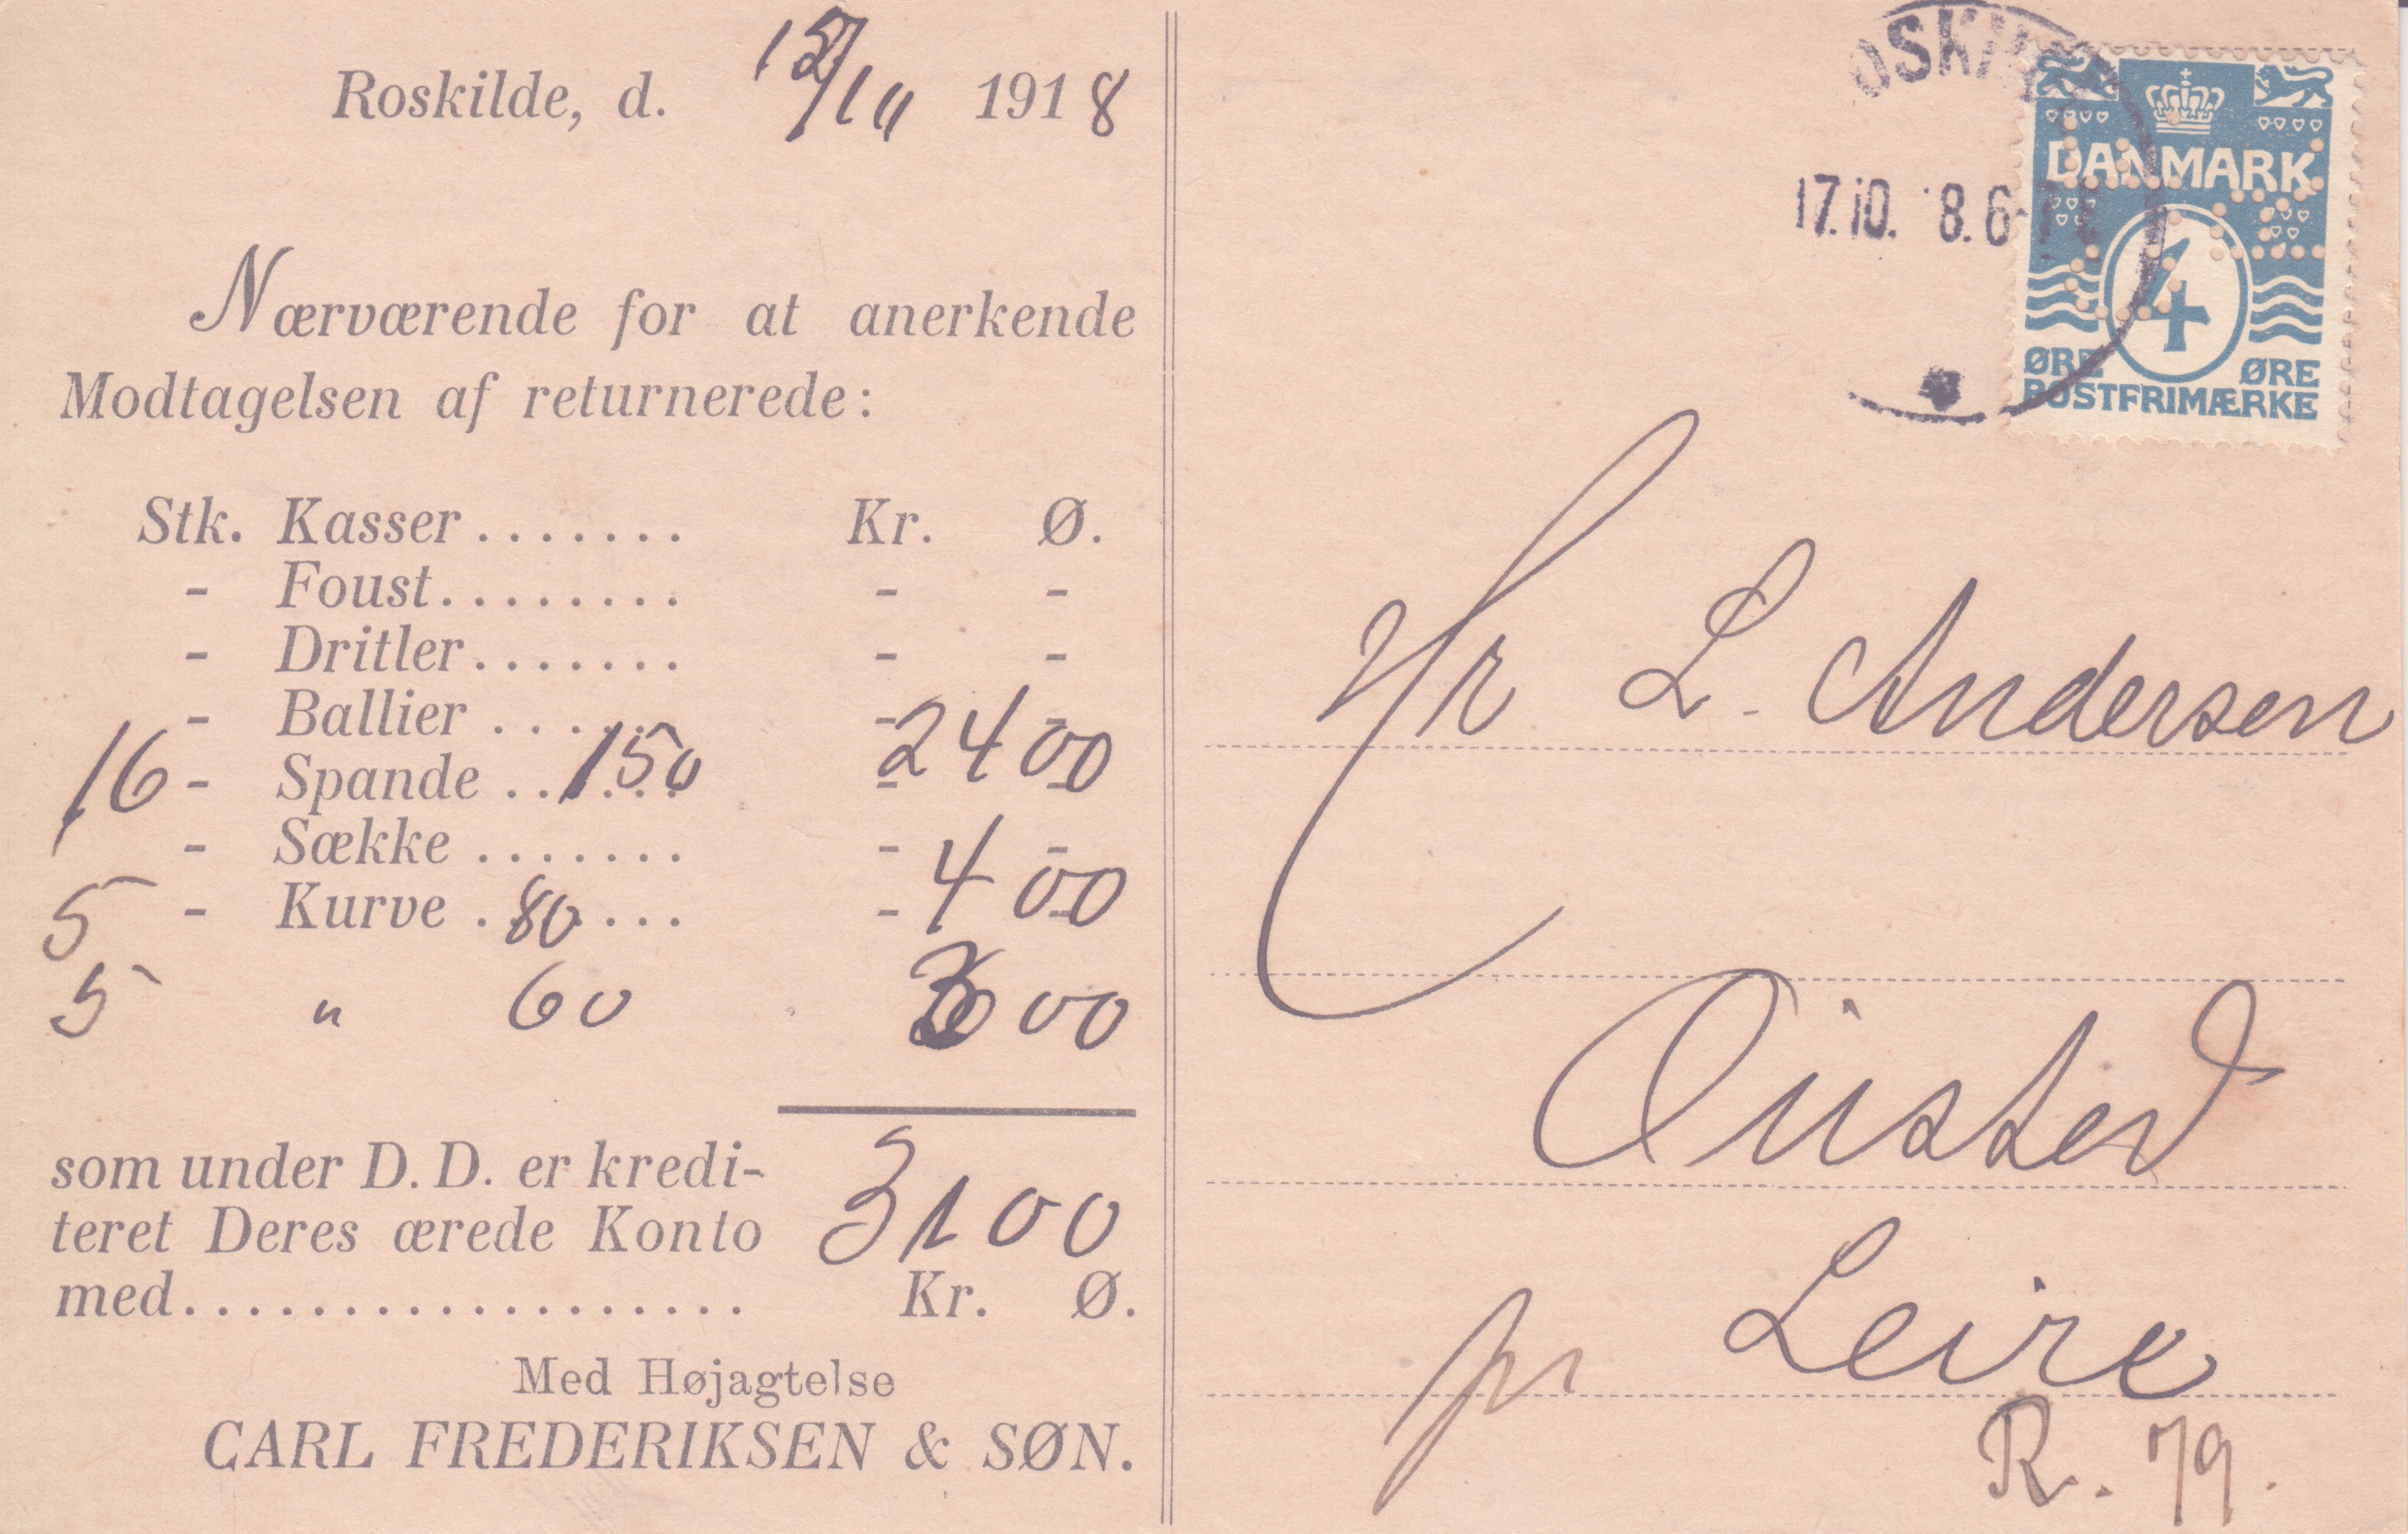 Roskilde, d. 1918
Nærværende for at anerkende
Modtagelsen af returnerede:
Stk. Kasser ....... Kr. Ø.
- Foust........ - -
- Dritler....... - -
- Ballier ...... - -
16 - Spande ...... 150 - 24 00
- Sække ....... - -
5 - Kurve ....... 80 - 4 00
5 " 60 3 00
som under D. D. er kredi-
teret Deres ærede Konto 31 00
med................... Kr. Ø.
Med Højagtelse
CARL FREDERIKSEN & SØN.
OSKIL
17.10. 8. 6-
DANMARK
4
ØRE ØRE
POSTFRIMÆRKE
Hr L. Andersen
Øisted
pr Leire
R. 79.